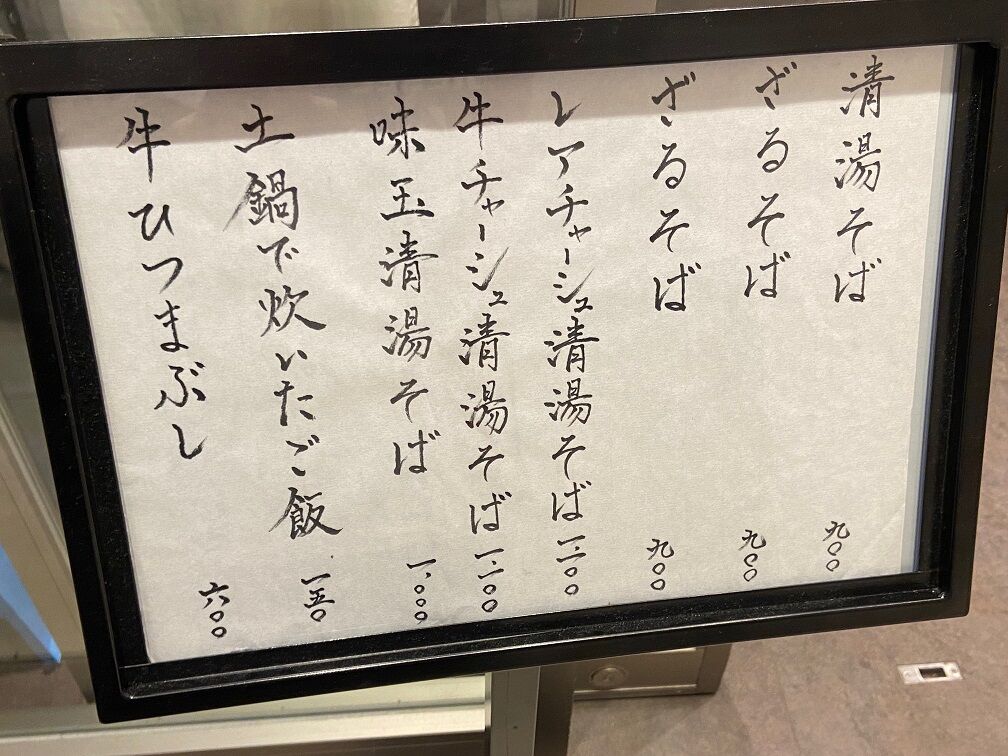 清湯そば 九〇〇
ざるそば 九〇〇
ざるそば 九〇〇
レアチャーシュ清湯そば 一、二〇〇
牛チャーシュ清湯そば 一、二〇〇
味玉清湯そば 一、〇〇〇
土鍋で炊いたご飯 一五〇
牛ひつまぶし 六〇〇